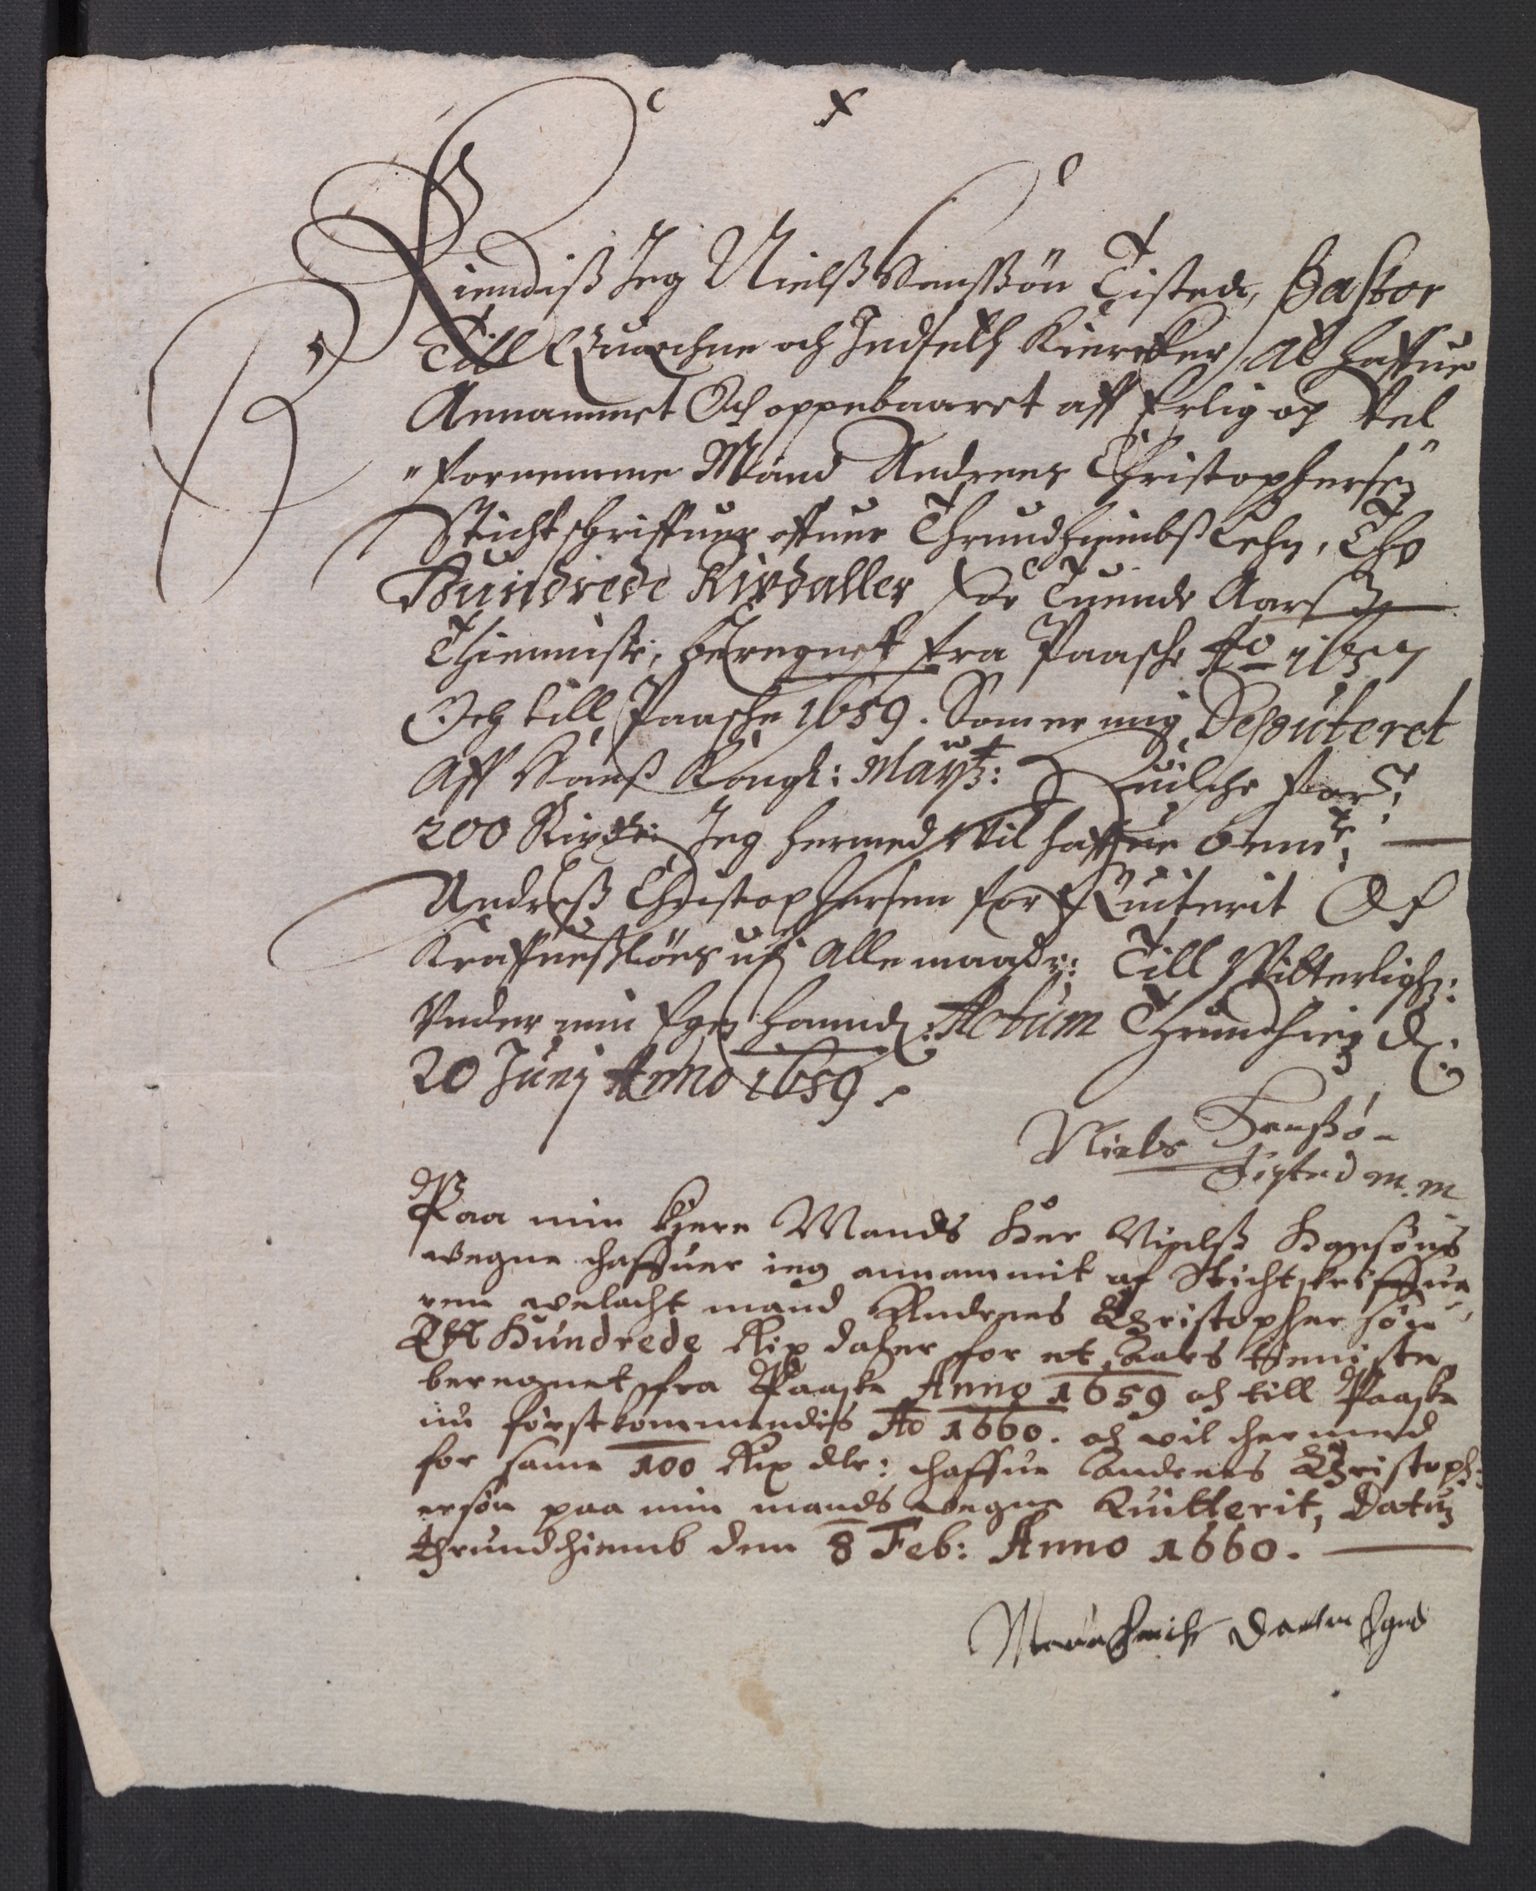 x
Kiendiß Jeg Nielß Hanßsön Tisted, Pastor
Till Quærne och Indseth Kiercker, At haffue
Annammet Och oppebaaret aff Erlig och Vel
fornemme Mand Andreas Christophersen
Stichtschriffuer offuer Thrundhiembs Lehn, Tho
Hundrede Rixdaller for Tuende Aarß
Thienniste, beregnet fra Paasche Ao 1657
Och till Paasche 1659. Som er mig Deputeret
Aff Hans Kongl: Maytz: Huilche for:
200 Rixdr Jeg hermed Vil haffue bemte:
Andreß Christophersen for Quiterit Och
Kraffueßlöes udj Alle maader: Till Vitterlighz:
Vnder min Egen Haand. Actum Thrundhiem d.
20 Junj Anno 1659.
Niels Hanßøn
Tisted m.m
Paa min kiere Mands Her Nielß Hansöns
wegne haffuer ieg annammit af Stichtskriffue
ren welacht mand Andreas Christophersön
Et Hundrede Rix daler for et Aars tieniste
beregnet fra Paaske Anno 1659 och till Paaske
nu förstkommendis Ao 1660. och vil hermed
for same 100 Rix dlr: haffue Andreas Christoph:
ersön paa min mands wegne Quitterit, Datum
Thrundhiemb den 8 Feb: Anno 1660.